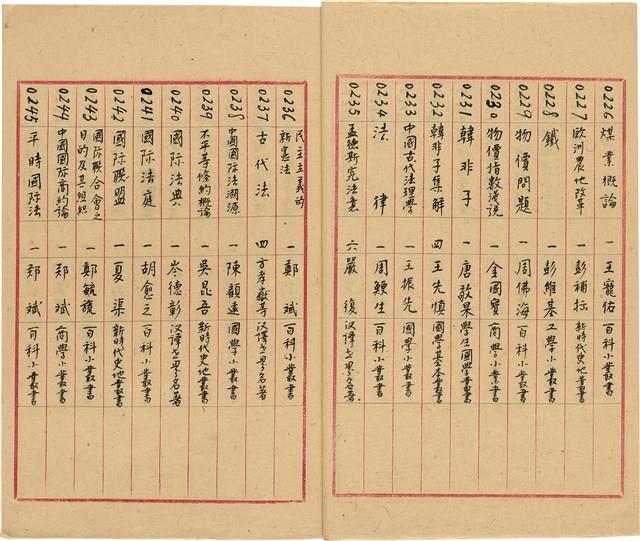 0226 煤業概論 一 王寵佑 百科小叢書
0227 欧洲農地改革 一 彭補拙 新時代史地叢書
0228 鐵 一 彭維基 工學小叢書
0229 物價問題 一 周佛海 百科小叢書
0230 物價指數淺說 一 金國寶 商學小叢書
0231 韓非子 一 唐敬杲 學生國學叢書
0232 韓非子集解 四 王先慎 國學基本叢書
0233 中國古代法理學 一 王振先 國學小叢書
0234 法律 一 周鯁生 百科小叢書
0235 孟德斯宄法意 六 嚴復 汉譯世界名著
0236 民主主義的新憲法 一 鄭斌 百科小叢書
0237 古代法 四 方孝嶽等 汉譯世界名著
0238 中國國际法溯源 一 陳顧遠 國學小叢書
0239 不平等條約概論 一 吳昆吾 新時代史地叢書
0240 國际法典 一 岑德彰 汉譯世界名著
0241 國际法庭 一 胡愈之 百科小叢書
0242 國际聯盟 一 夏渠 新時代史地叢書
0243 國际聯合會之目的及其組織 一 鄭毓旒 百科小叢書
0244 中國國际商約論 一 郑斌 商學小叢書
0245 平時國际法 二 郑斌 百科小叢書